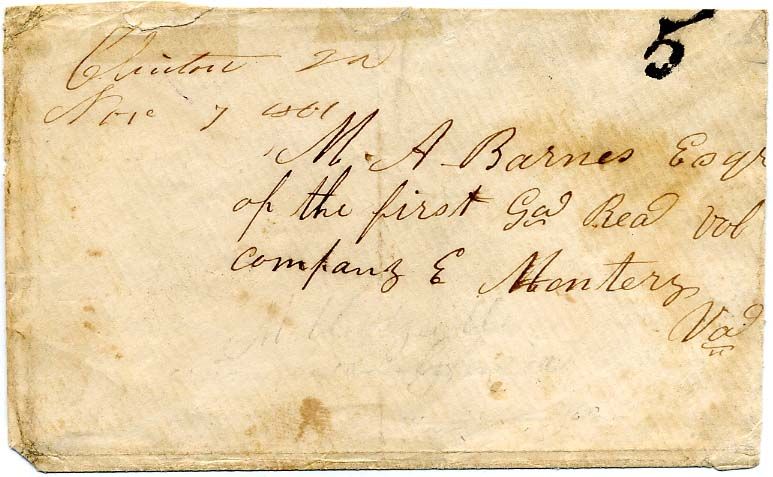 5
Clinton Ga
Nov 7 1861
M. A Barnes Esqr
of the first Ga Rea Vol
company E Montery
Va